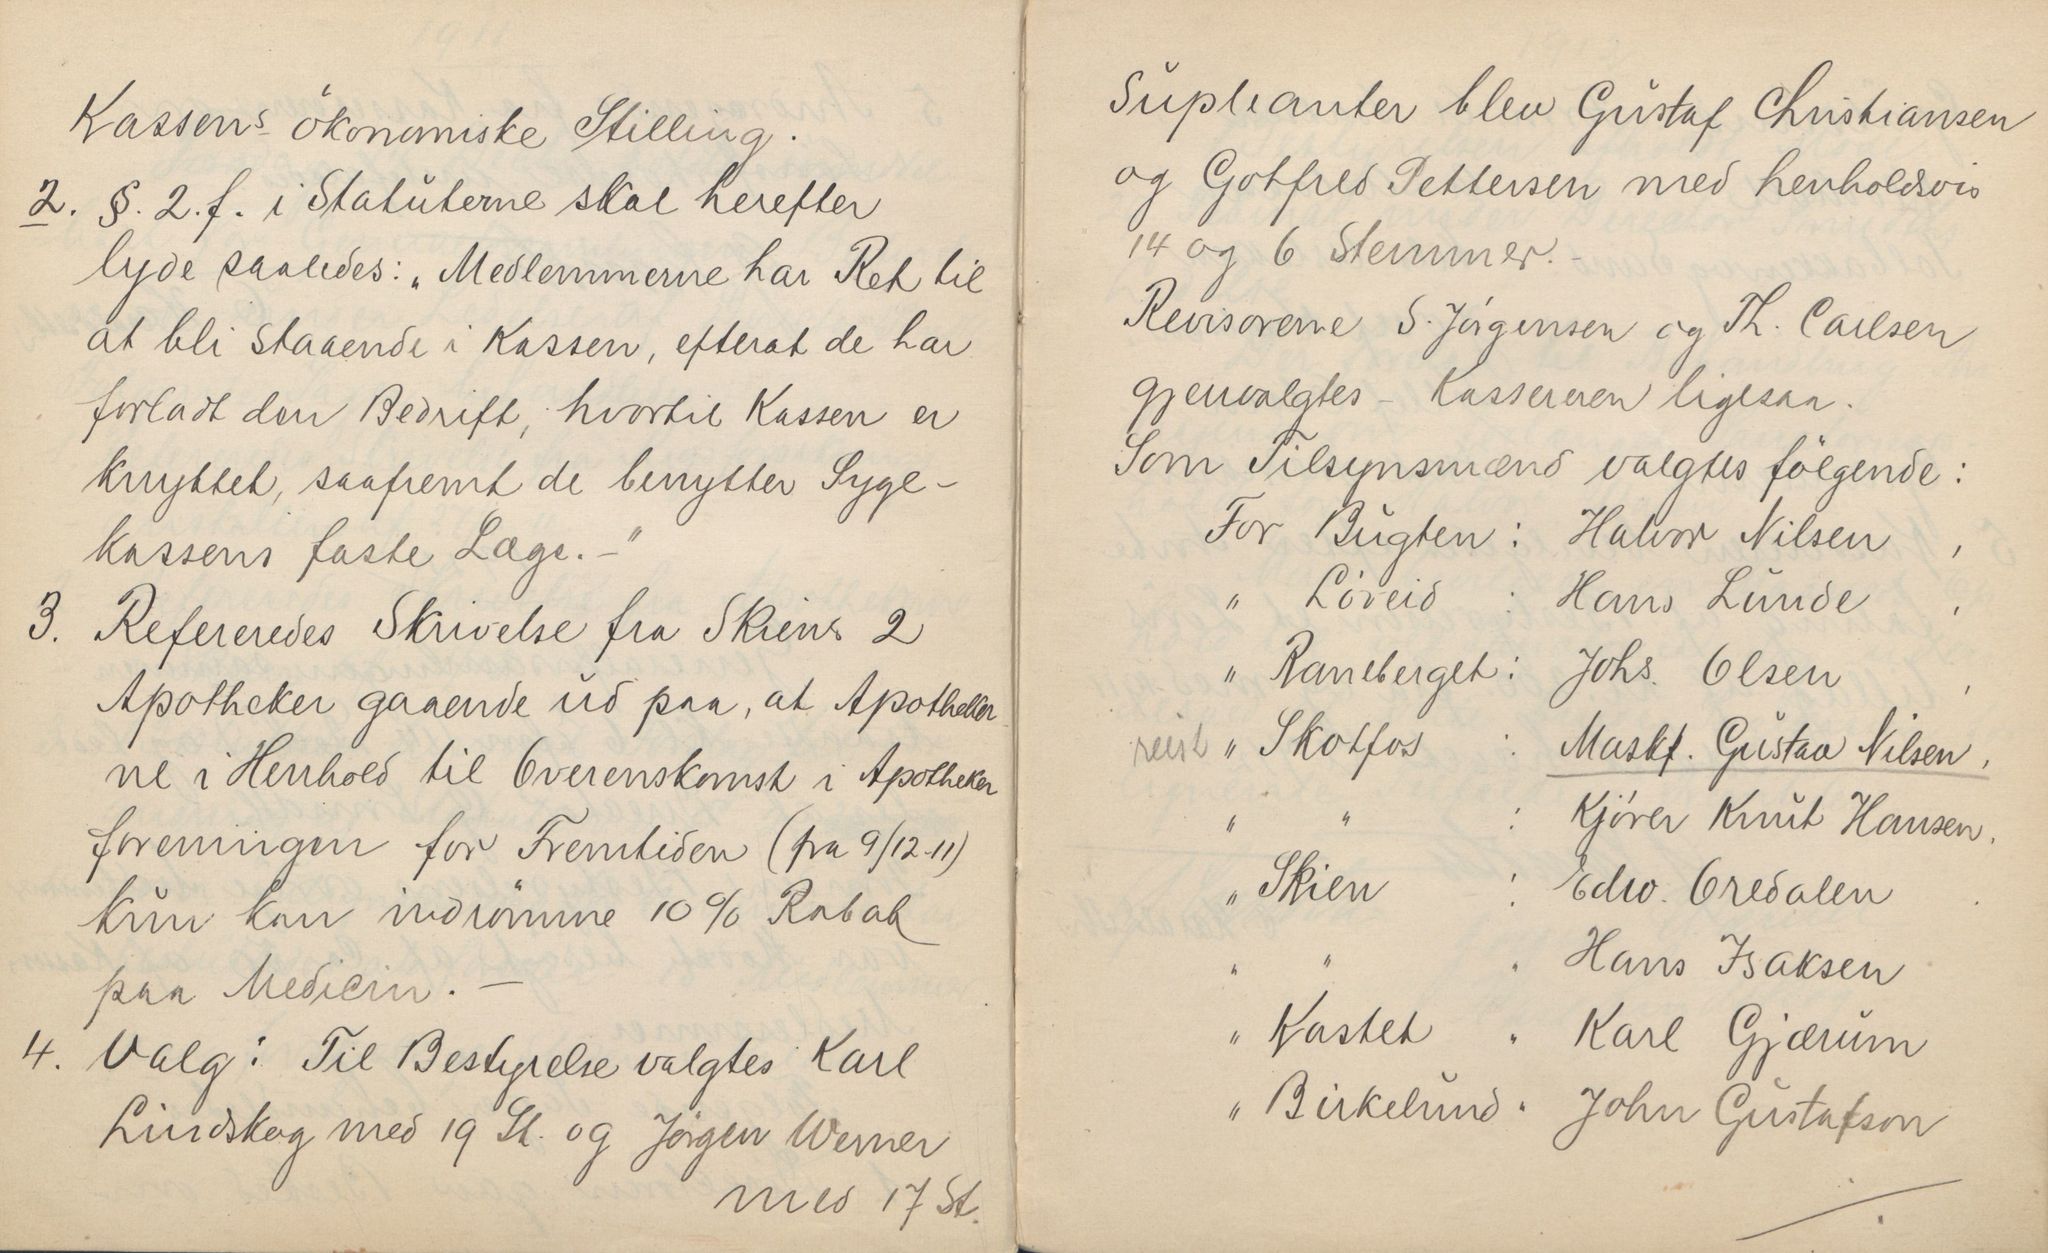 Kassens økonomiske Stilling.
2. §. 2. f. i Statuterne skal herefter
lyde saaledes: „Medlemmerne har Ret til
at bli staaende i Kassen, efterat de har
forladt den Bedrift, hvortil Kassen er
knyttet, saafremt de benytter Syge-
kassens faste Læge. –"
3. Refereredes Skrivelse fra Skiens 2
Apotheker gaaende ud paa, at Apotheker
ne i Henhold til Overenskomst i Apotheker
foreningen for Fremtiden (fra 9/12-11)
kun kan indrømme 10 % Rabat
paa Medicin. –
4. Valg: Til Bestyrelse valgtes Karl
Lindskog med 19 St. og Jørgen Werner
med 17 St.
Supleanter blev Gustaf Christiansen
og Gotfred Pettersen med henholdsvis
14 og 6 Stemmer. -
Revisorerne S. Jørgensen og Th. Carlsen
gjenvalgtes – Kassereren ligesaa.
Som Tilsynsmænd valgtes følgende:
For Bugten: Halvor Nilsen,
„ Løveid : Hans Lunde,
„ Raneberget: Johs. Olsen,
reist „ Skotfos : Maskf. Gustav Nilsen,
„ „ : Kjører Knut Hansen.
„ Skien : Edv. Oredalen.
„ „ „ Hans Isaksen
„ Kastet „ Karl Gjærum
„ Birkelund „ John Gustafson